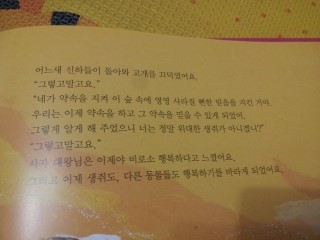 어느새 신하들이 돌아와 고개를 끄덕였어요.
"그렇고말고요."
"네가 약속을 지켜 이 숲 속에 영영 사라질 뻔한 믿음을 지킨 거야.
우리는 이제 약속을 하고 그 약속을 믿을 수 있게 되었어.
그렇게 알게 해 주었으니 너는 정말 위대한 생쥐가 아니겠니?"
"그렇고말고요."
사자 대왕님은 이제야 비로소 행복하다고 느꼈어요.
그리고 이제 생쥐도, 다른 동물들도 행복하기를 바라게 되었어요.